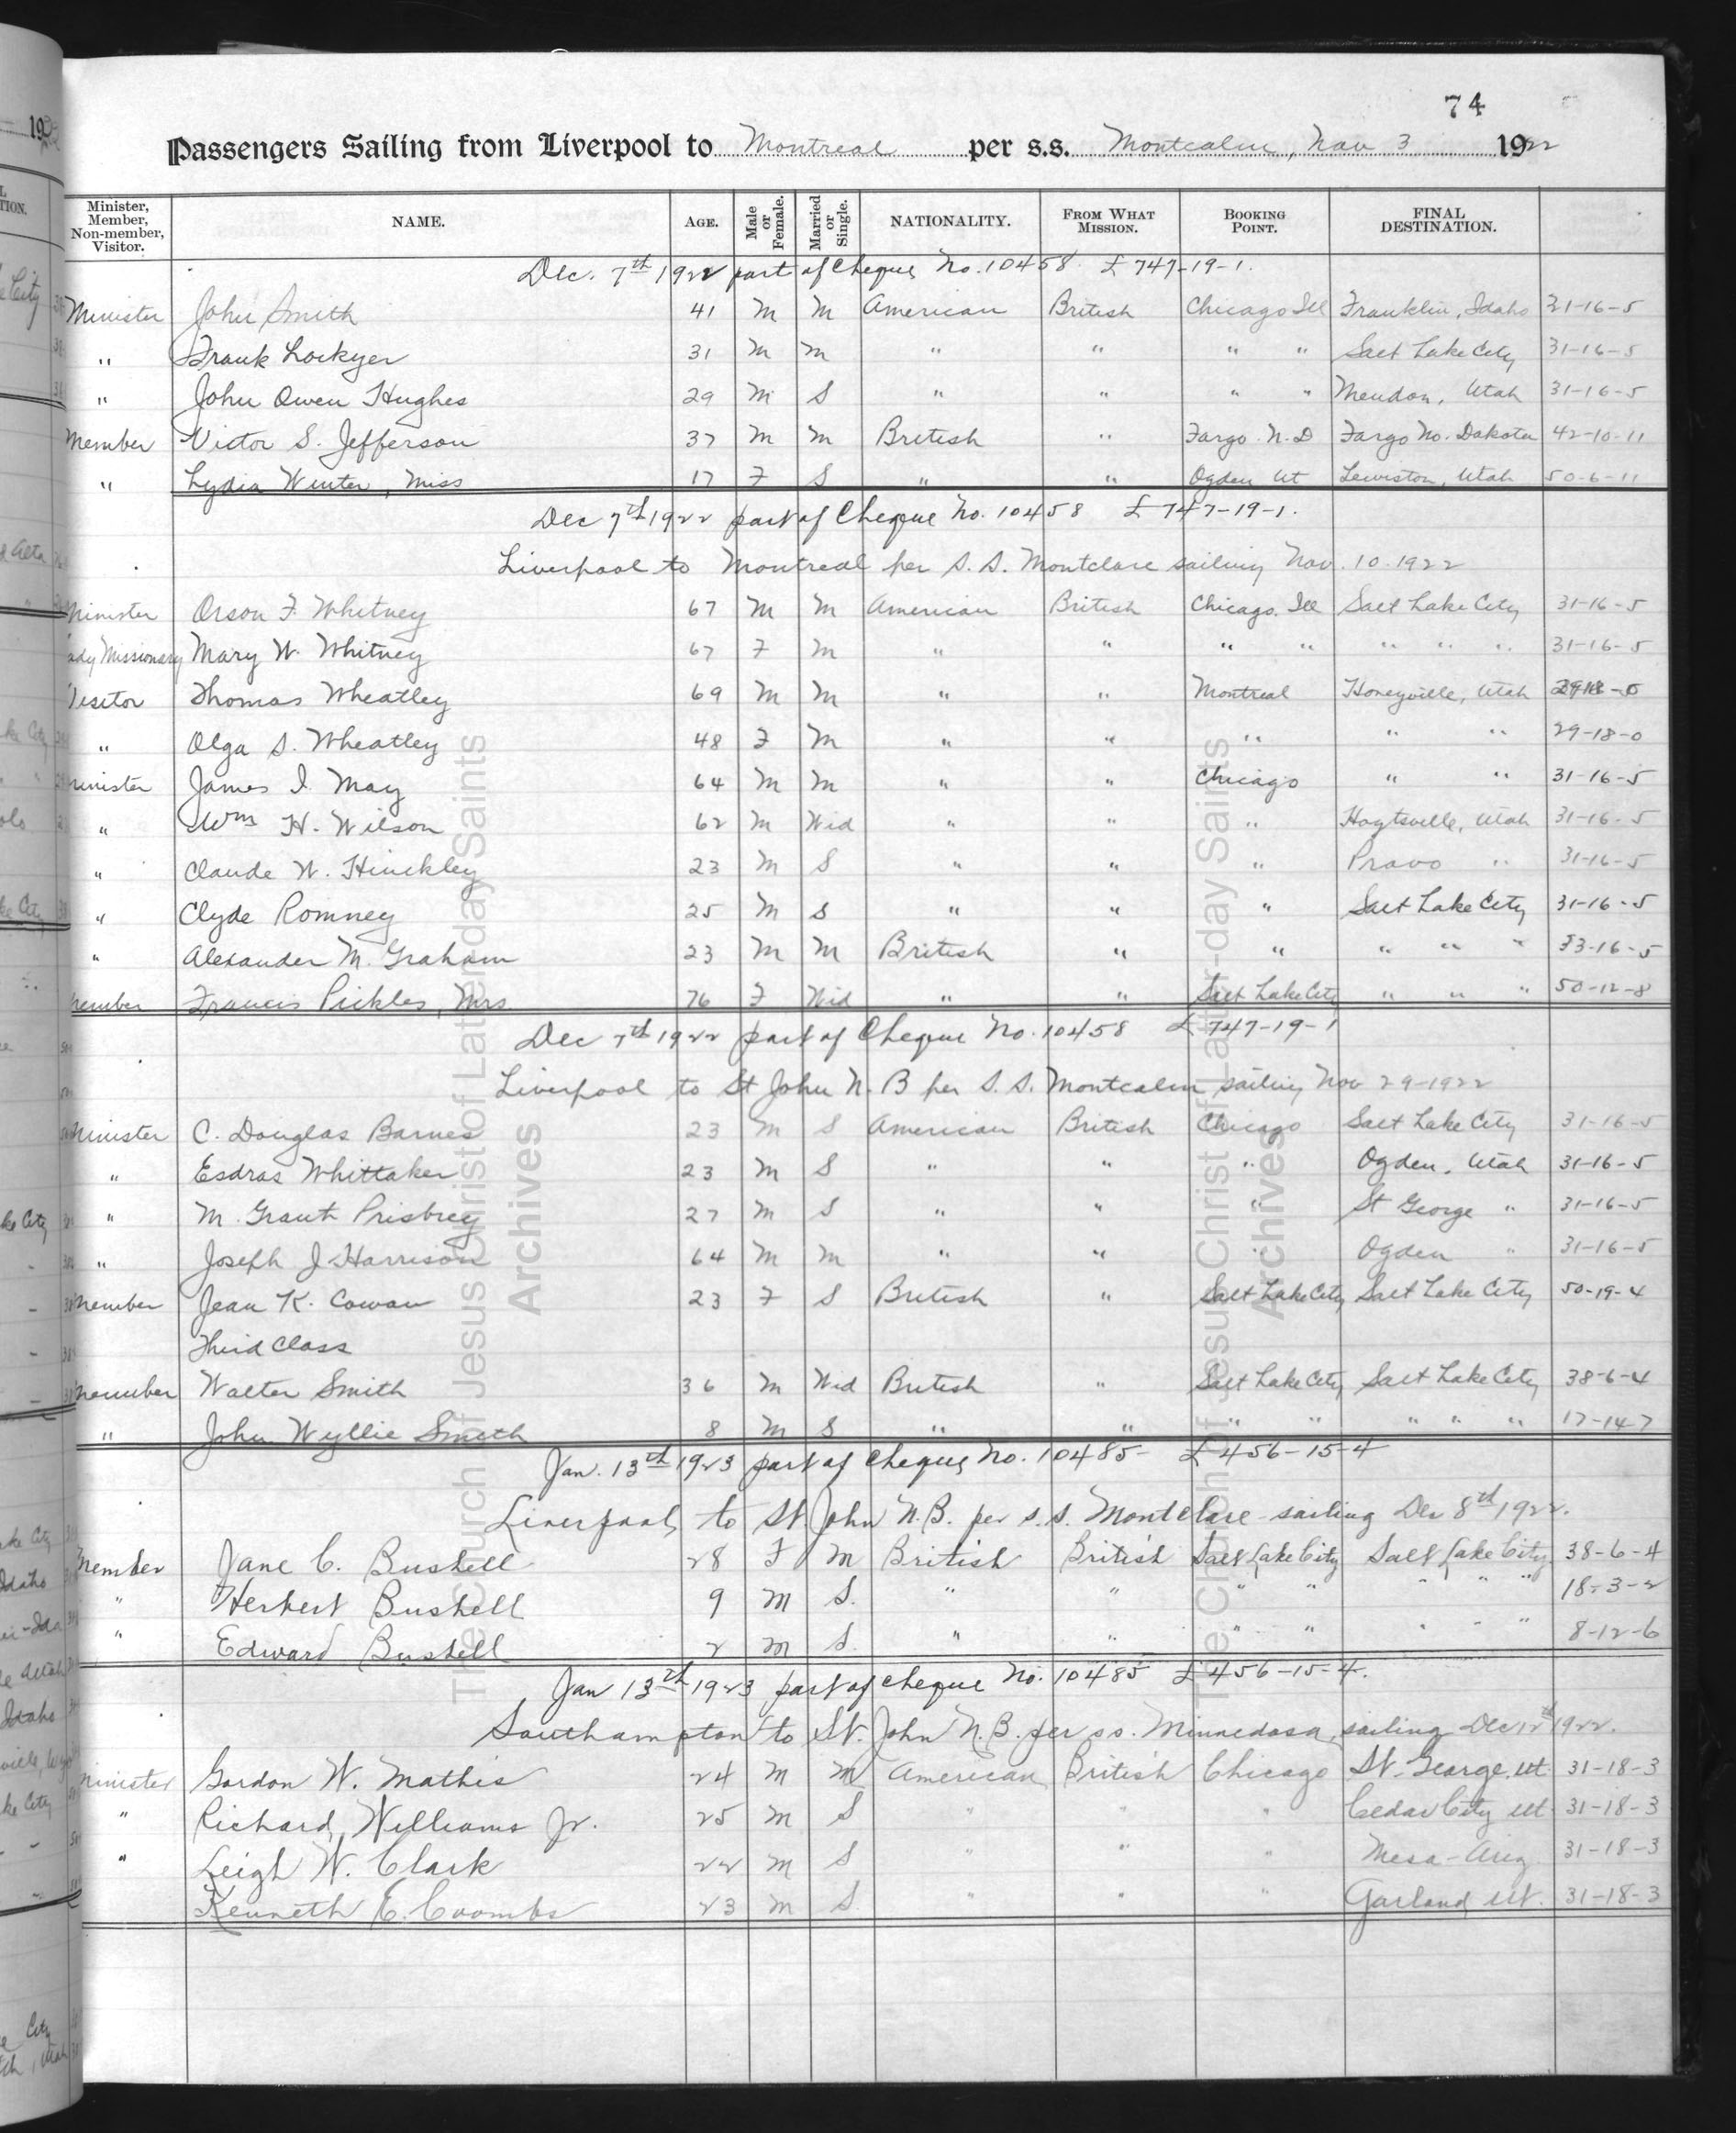 74
Passengers Sailing from Liverpool to Montreal per s.s. Montcalm, Nov 3 1922
Minister, Member, Non-member, Visitor. NAME. AGE. Male or Female. Married or Single. NATIONALITY. FROM WHAT MISSION. BOOKING POINT. FINAL DESTINATION.
Dec. 7th 1922 part of Cheque No. 10458 £747-19-1.
Minister John Smith 41 M M American British Chicago Ill Franklin, Idaho 31-16-5
" Frank Lockyer 31 M M " " " " Salt Lake City 31-16-5
" John Owen Hughes 29 M S " " " " Mendon, Utah 31-16-5
Member Victor S. Jefferson 37 M M British " Fargo N.D Fargo No. Dakota 42-10-11
" Lydia Winter, Miss 17 F S " " Ogden Ut Lewiston, Utah 50-6-11
Dec 7th 1922 part of Cheque No. 10458 £747-19-1.
Liverpool to Montreal per S.S. Montclare sailing Nov. 10. 1922
Minister Orson F. Whitney 67 M M American British Chicago. Ill Salt Lake City 31-16-5
ady Missionary Mary W. Whitney 67 F M " " " " " " " 31-16-5
Visitor Thomas Wheatley 69 M M " " Montreal Honeyville, Utah
" Olga S. Wheatley 48 F M " " " " " 29-18-0
Minister James I. May 64 M M " " Chicago " " 31-16-5
" Wm H. Wilson 62 M Wid " " " Hoytsville, Utah 31-16-5
" Claude W. Hinckley 23 M S " " " Provo " 31-16-5
" Clyde Romney 25 M S " " " Salt Lake City 31-16-5
" Alexander M. Graham 23 M M British " " " " " 33-16-5
Member Francis Pickles, Mrs 76 F Wid " " Salt Lake City " " " 50-12-8
Dec 7th 1922 part of Cheque No. 10458 £747-19-1
Liverpool to St John N.B per S.S. Montcalm sailing Nov 29-1922
Minister C. Douglas Barnes 23 M S American British Chicago Salt Lake City 31-16-5
" Esdras Whittaker 23 M S " " " Ogden, Utah 31-16-5
" M. Grant Prisbrey 27 M S " " " St George " 31-16-5
" Joseph J Harrison 64 M M " " " Ogden " 31-16-5
Member Jean K. Cowan 23 F S British " Salt Lake City Salt Lake City 50-19-4
Third Class
Member Walter Smith 36 M Wid British " Salt Lake City Salt Lake City 38-6-4
" John Wyllie Smith 8 M S " " " " " " " 17-14-7
Jan. 13th 1923 part of Cheque No. 10485 £456-15-4
Liverpool to St John N.B. per s.s. Montclare sailing Dec 8th 1922.
Member Jane C. Bushell 28 F M British British Salt Lake City Salt Lake City 38-6-4
" Herbert Bushell 9 M S. " " " " " " " 18-3-2
" Edward Bushell 2 M S. " " " " " " " 8-12-6
Jan 13th 1923 part of cheque No. 10485 £456-15-4.
Southampton to St. John N.B. per s.s. Minnedosa, sailing Dec 12th 1922.
Minister Gordon W. Mathis 24 M M American British Chicago St. George, Ut. 31-18-3
" Richard Williams Jr. 25 M S " " " Cedar City Ut. 31-18-3
" Leigh W. Clark 22 M S " " " Mesa-Ariz 31-18-3
Kenneth E. Coombs 23 M S. " " " Garland Ut. 31-18-3
The Church of Jesus Christ of Latter-day Saints
Archives
The Church of Jesus Christ of Latter-day Saints
Archives